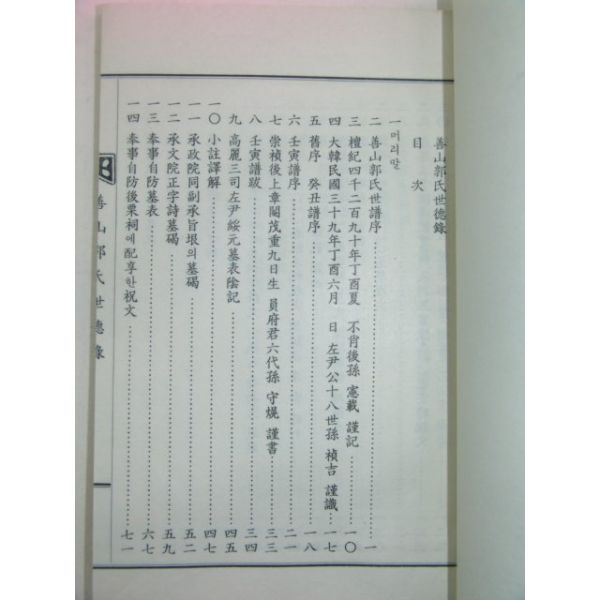 善山郭氏世德錄
目次
一 머리말
二 善山郭氏世譜序 一
三 檀紀四千二百九十年丁酉夏 不肖後孫 憲載 謹記 一〇
四 大韓民國三十九年丁酉六月 日 左尹公十八世孫 楨吉 謹識 一七
五 舊序 癸丑譜序 一八
六 壬寅譜序 二一
七 崇禎後上章閹茂重九日生 員府君六代孫 守焜 謹書 三三
八 壬寅譜跋 三四
九 高麗三司左尹綏元墓表陰記 四五
一〇 小註譯解 四七
一一 承政院同副承旨垠의墓碣 五二
一二 承文院正字詩墓碣 五九
一三 奉事自防墓表 六七
一四 奉事自防後栗祠에配享한祝文 七一
善山郭氏世德錄